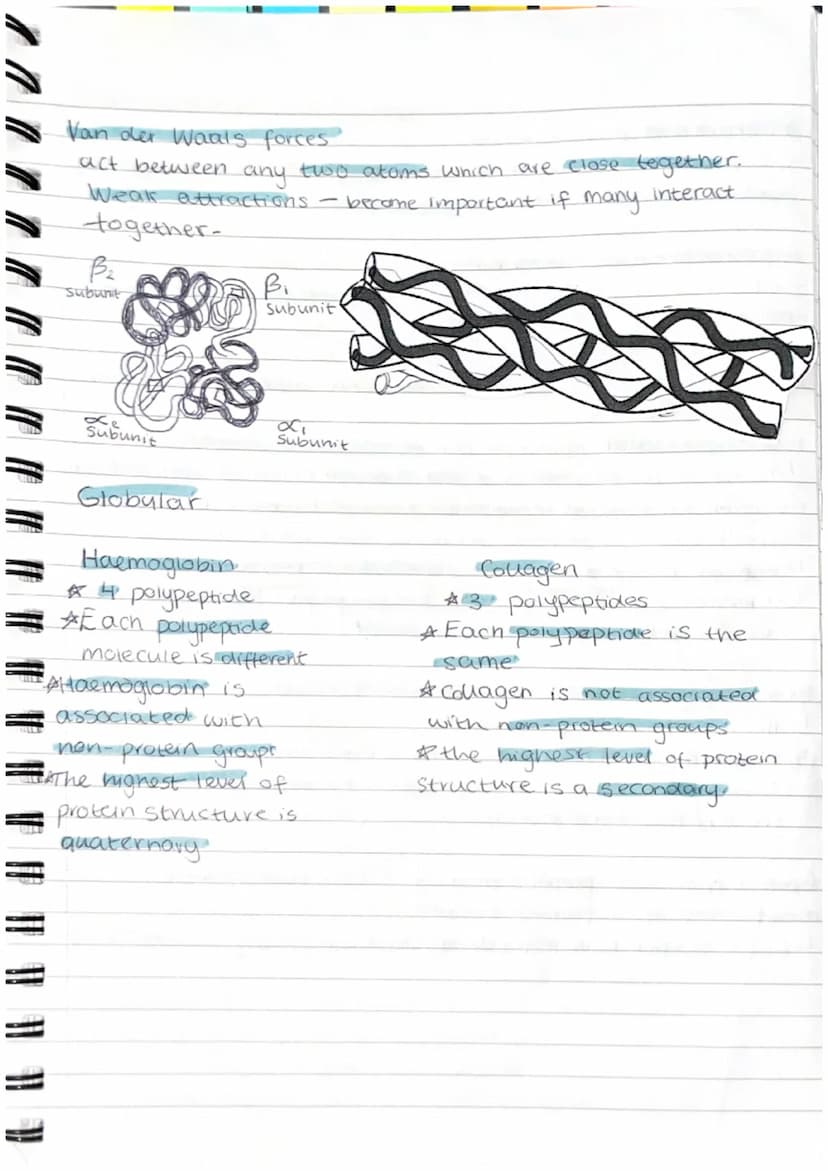 Van der Waals forces
act between any two atoms which are close together.
Weak attractions – become important if many interact
together-
β2
subunit
β1
subunit
α2
subunit
α1
subunit
Globular
Haemoglobin
☆ 4 polypeptide
☆ Each polypeptide
molecule is different
☆ Haemoglobin is
associated with
non-protein groups
☆ The highest level of
protein structure is
quaternary
Collagen
☆ 3 polypeptides
☆ Each polypeptide is the
same
☆ Collagen is not associated
with non-protein groups
☆ the highest level of protein
structure is a secondary.